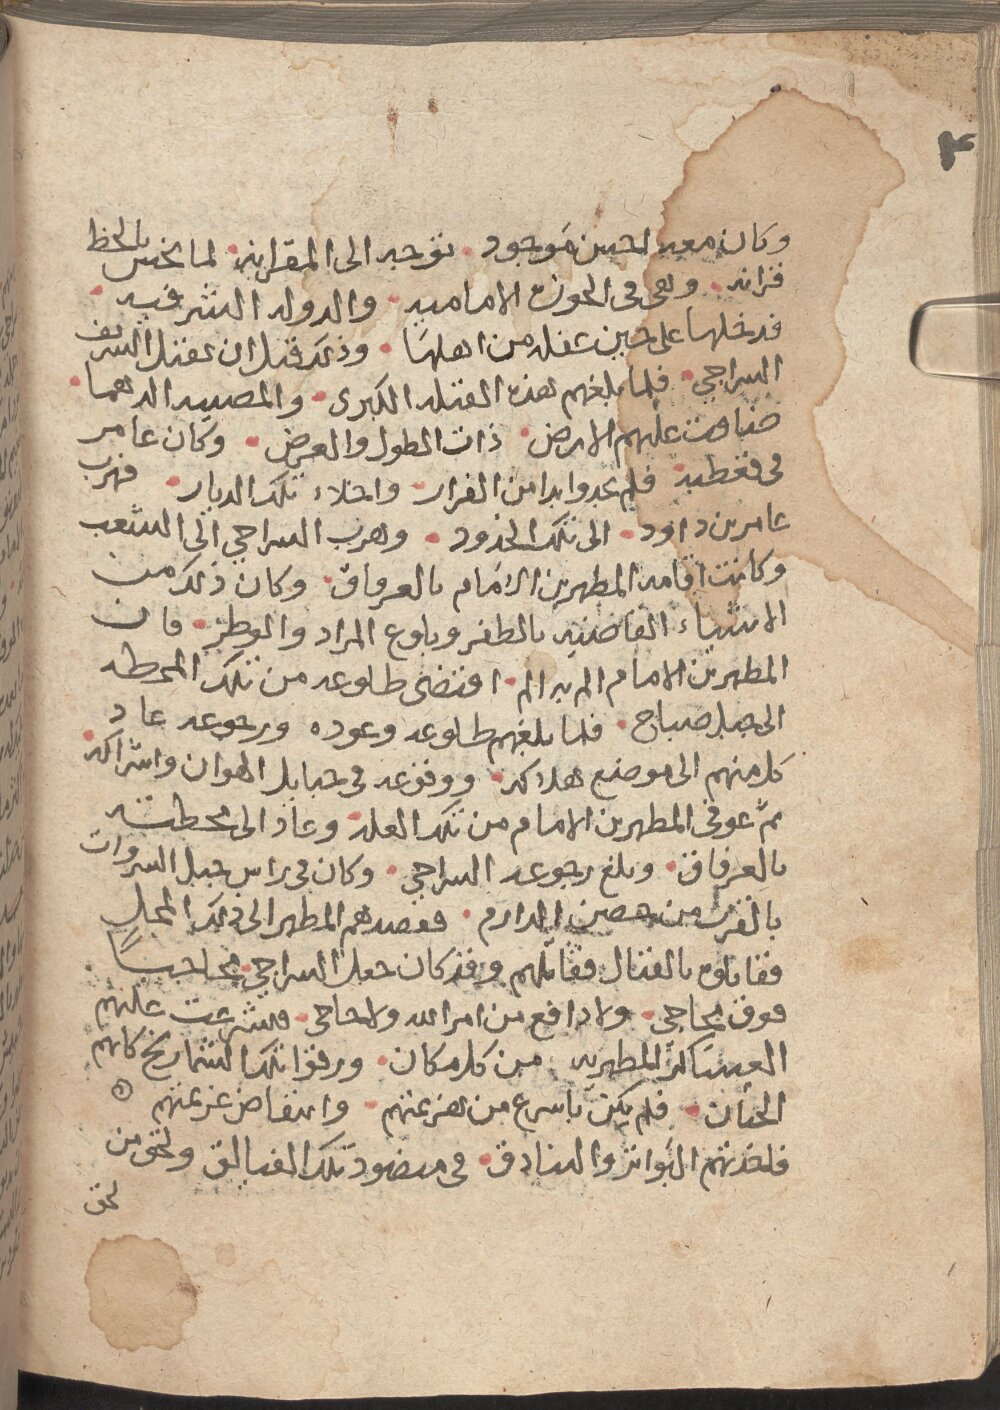 وكان معه احسن موجود • توجه الى المقرانه • لما بخس بالحظ
فزانه • وبقى فى الحوزه الاماميه • والدوله الشرفيه •
فدخلها على حين غفله من اهلها • وذلك قبل ان يقتل الشريف
السراجي • فلما بلغهم هذه القتله الكبرى • والمصيبه الدهما •
ضاقت عليهم الارض • ذات الطول والعرض • وكان عامر
فى قعطبه • فلم يجدوا بدا من الفرار • واخلاء تلك الديار • فهرب
عامر بن داود • الى تلك الحدود • وهرب السراجي الى الشعب
وكانت اقامه المطهر بن الامام بالعرفاف • وكان ذلك من
الاشياء القاضيه بالظفر وبلوغ المراد والوطر • فان
المطهر بن الامام الم به الم • اقتضى طلوعه من تلك المحطه
الى جبل صباح • فلما بلغهم طلوعه وعوده ورجوعه عاد
كل منهم الى موضع هلاكه • ووقوعه فى حبايل الهوان واشراكه •
ثم عوفى المطهر بن الامام من تلك العله • وعاد الى محطته
بالعرفاف • وبلغ رجوعه السراجي • وكان فى راس جبل السروات
بالقرب من حصن الدارم • فقصدهم المطهر الى ذلك المحل
فقابلوه بالقتال فقاتلهم وقد كان جعل السراجي محاجبا
فوق محاجي • ولا دافع من امر الله ولا حاجي • فشرعت عليهم
العساكر المطهريه من كل مكان • ورقوا تلك الشماريخ كانهم
الجان • فلم يكن باسرع من هزيمتهم • وانتقاض عزيمتهم
فاخذتهم البواتر والبنادق • فى منضود تلك الفيالق ولحق من
لحق